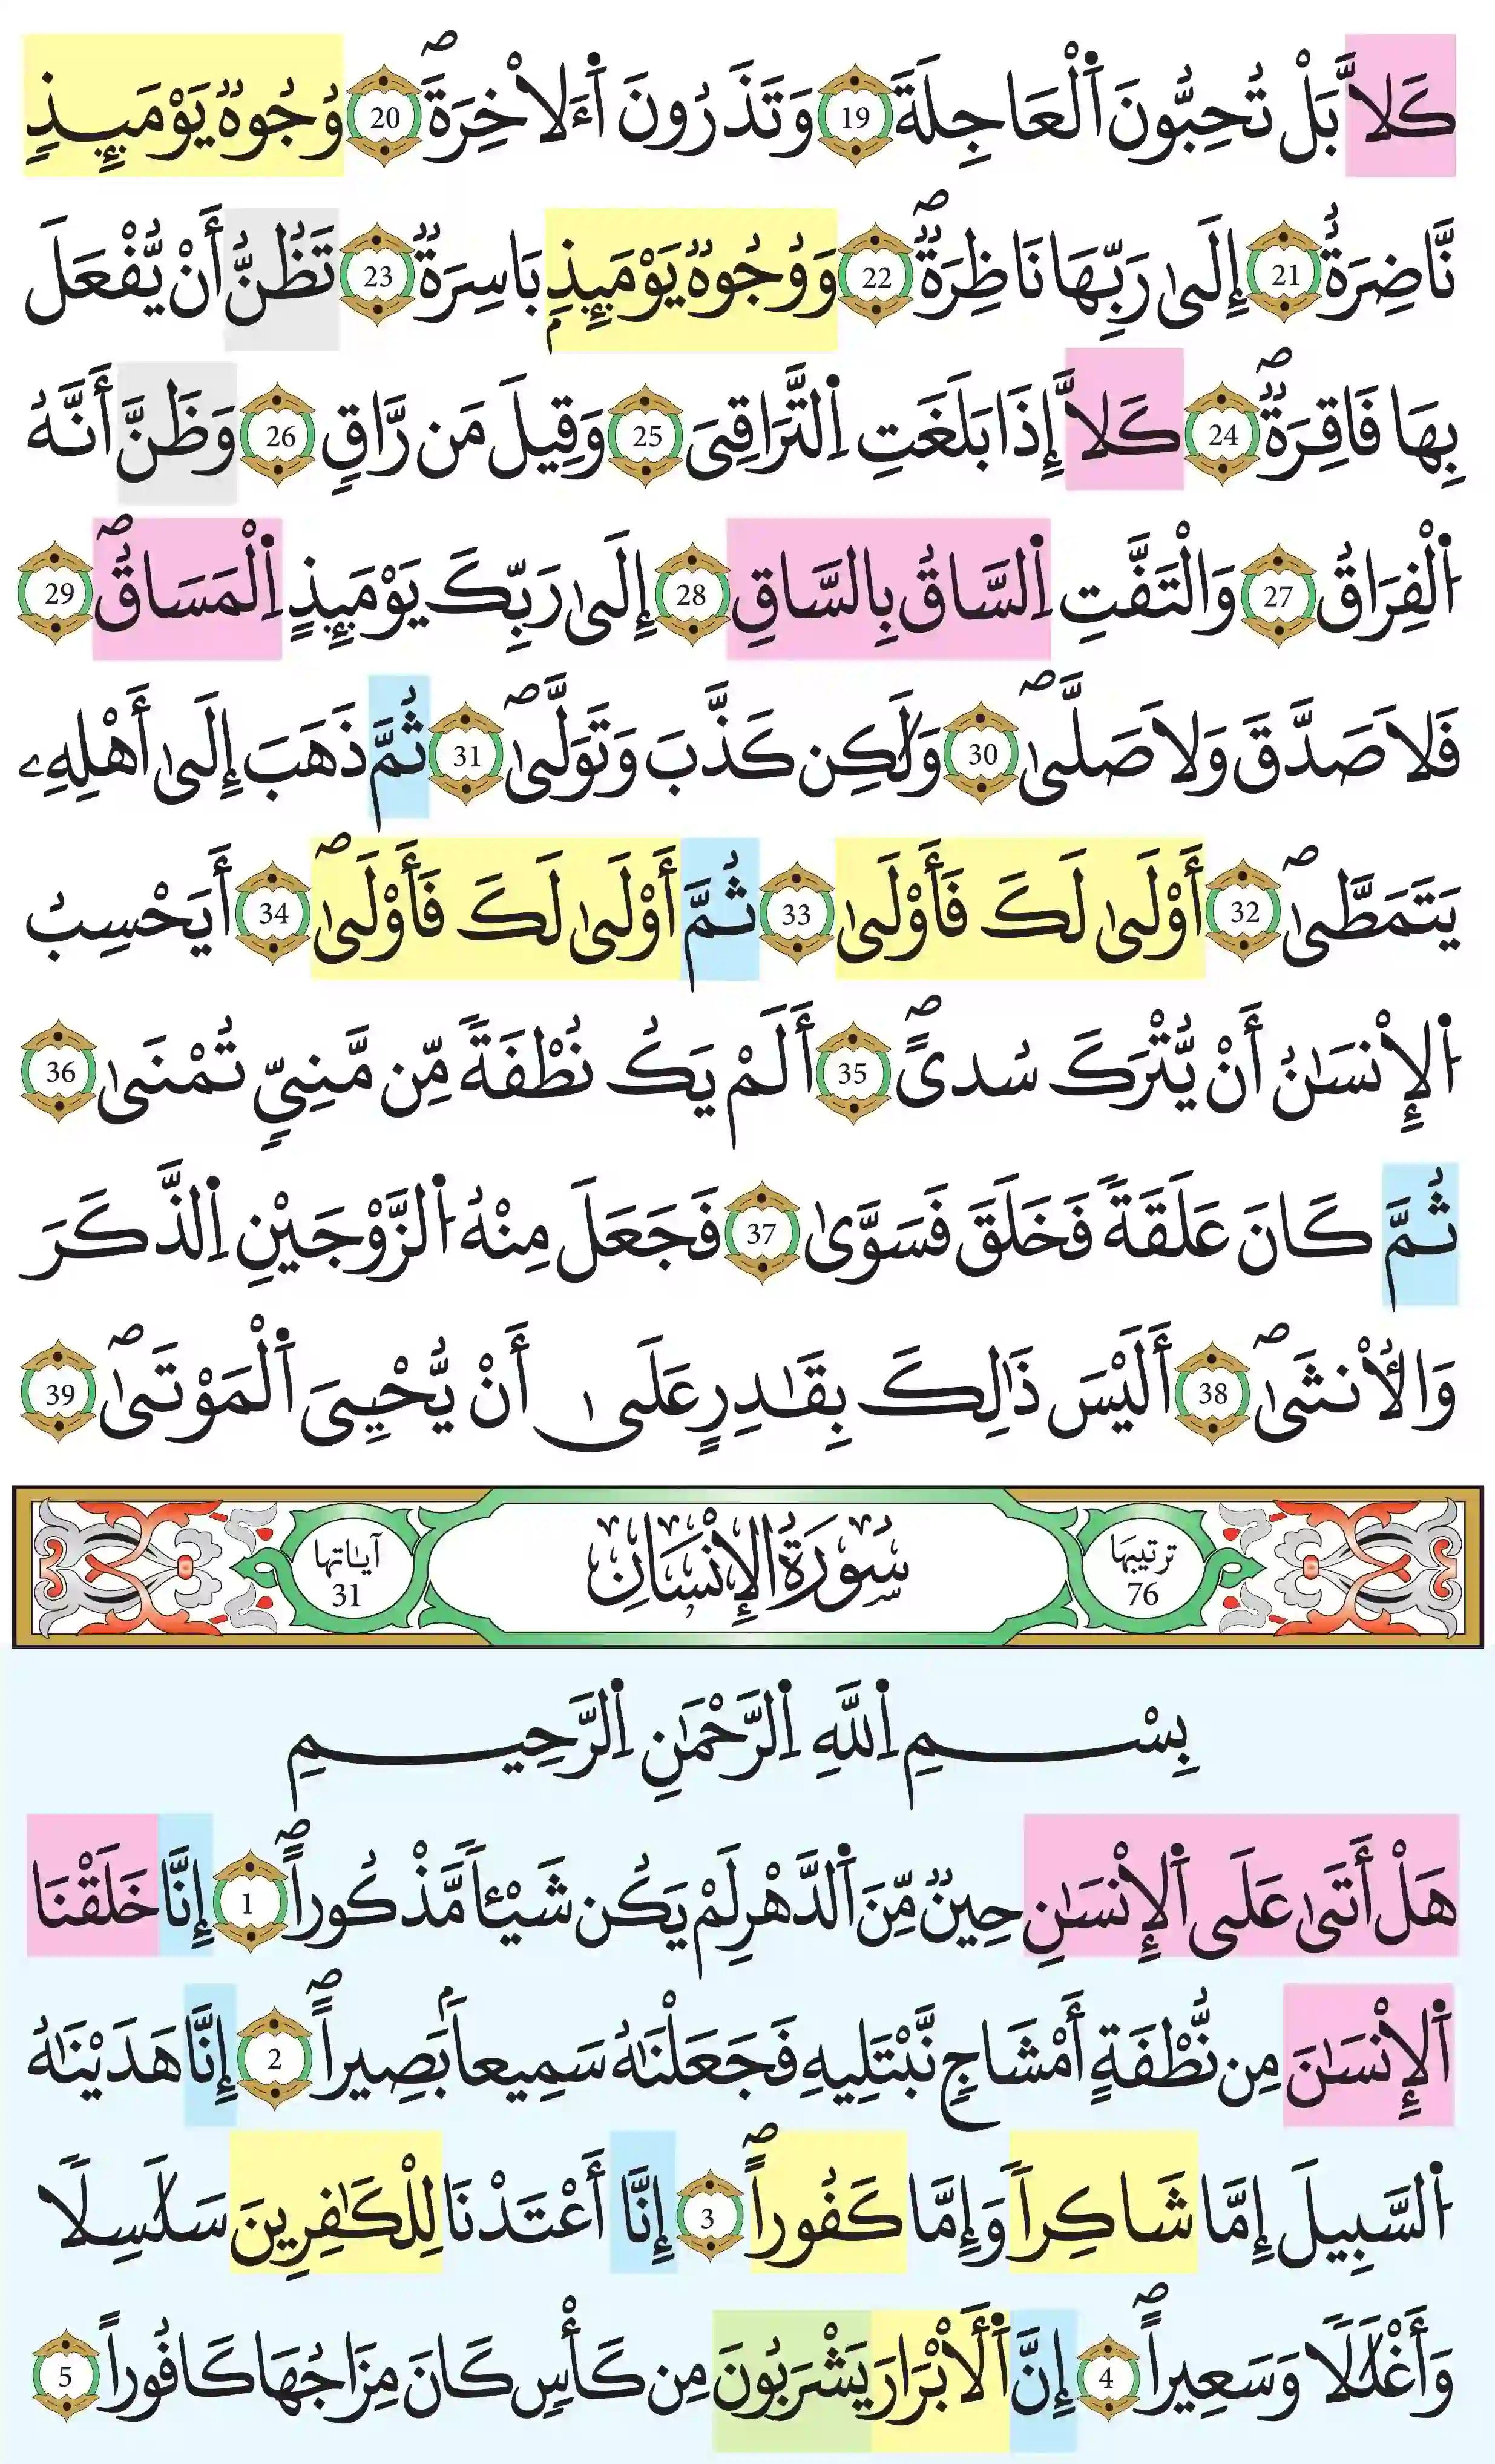 كَلَّا بَلْ تُحِبُّونَ اَ۬لْعَاجِلَةَ 19 وَتَذَرُونَ اَ۬لَاخِرَةَۖ 20 وُجُوهٞ يَوْمَئِذٖ
نَّاضِرَةٌ 21 إِلَىٰ رَبِّهَا نَاظِرَةٞۖ 22 وَوُجُوهٞ يَوْمَئِذِۢ بَاسِرَةٞ 23 تَظُنُّ أَنْ يُّفْعَلَ
بِهَا فَاقِرَةٞۖ 24 كَلَّا إِذَا بَلَغَتِ اِ۬لتَّرَاقِيَ 25 وَقِيلَ مَن رَّاقٖ 26 وَظَنَّ أَنَّهُ
اُ۬لْفِرَاقُ 27 وَالْتَفَّتِ اِ۬لسَّاقُ بِالسَّاقِ 28 إِلَىٰ رَبِّكَ يَوْمَئِذٍ اِ۬لْمَسَاقُۖ 29
فَلَا صَدَّقَ وَلَا صَلَّىٰۖ 30 وَلَٰكِن كَذَّبَ وَتَوَلَّىٰۖ 31 ثُمَّ ذَهَبَ إِلَىٰ أَهْلِهِۦ
يَتَمَطَّىٰۖ 32 أَوْلَىٰ لَكَ فَأَوْلَىٰ 33 ثُمَّ أَوْلَىٰ لَكَ فَأَوْلَىٰۖ 34 أَيَحْسِبُ
اُ۬لْإِنْسَٰنُ أَنْ يُّتْرَكَ سُدىًۖ 35 أَلَمْ يَكُ نُطْفَةٗ مِّن مَّنِيّٖ تُمْنَىٰ 36
ثُمَّ كَانَ عَلَقَةٗ فَخَلَقَ فَسَوَّىٰ 37 فَجَعَلَ مِنْهُ اُ۬لزَّوْجَيْنِ اِ۬لذَّكَرَ
وَالْأُنْثَىٰۖ 38 أَلَيْسَ ذَٰلِكَ بِقَٰدِرٍ عَلَىٰ أَنْ يُّحْيِيَ اَ۬لْمَوْتَىٰۖ 39
ترتيبها 76 سُورَةُ الْإِنْسَانِ آياتها 31
بِسْمِ اِ۬للَّهِ اِ۬لرَّحْمَٰنِ اِ۬لرَّحِيمِ
هَلْ أَتَىٰ عَلَى اَ۬لْإِنْسَٰنِ حِينٞ مِّنَ اَ۬لدَّهْرِ لَمْ يَكُن شَيْـٔاٗ مَّذْكُوراًۖ 1 إِنَّا خَلَقْنَا
اَ۬لْإِنْسَٰنَ مِن نُّطْفَةٍ أَمْشَاجٖ نَّبْتَلِيهِ فَجَعَلْنَٰهُ سَمِيعاَۢ بَصِيراًۖ 2 إِنَّا هَدَيْنَٰهُ
اُ۬لسَّبِيلَ إِمَّا شَاكِراٗ وَإِمَّا كَفُوراًۖ 3 إِنَّا أَعْتَدْنَا لِلْكَٰفِرِينَ سَلَٰسِلاٗ
وَأَغْلَٰلاٗ وَسَعِيراًۖ 4 إِنَّ اَ۬لْأَبْرَارَ يَشْرَبُونَ مِن كَأْسٖ كَانَ مِزَاجُهَا كَافُوراً 5